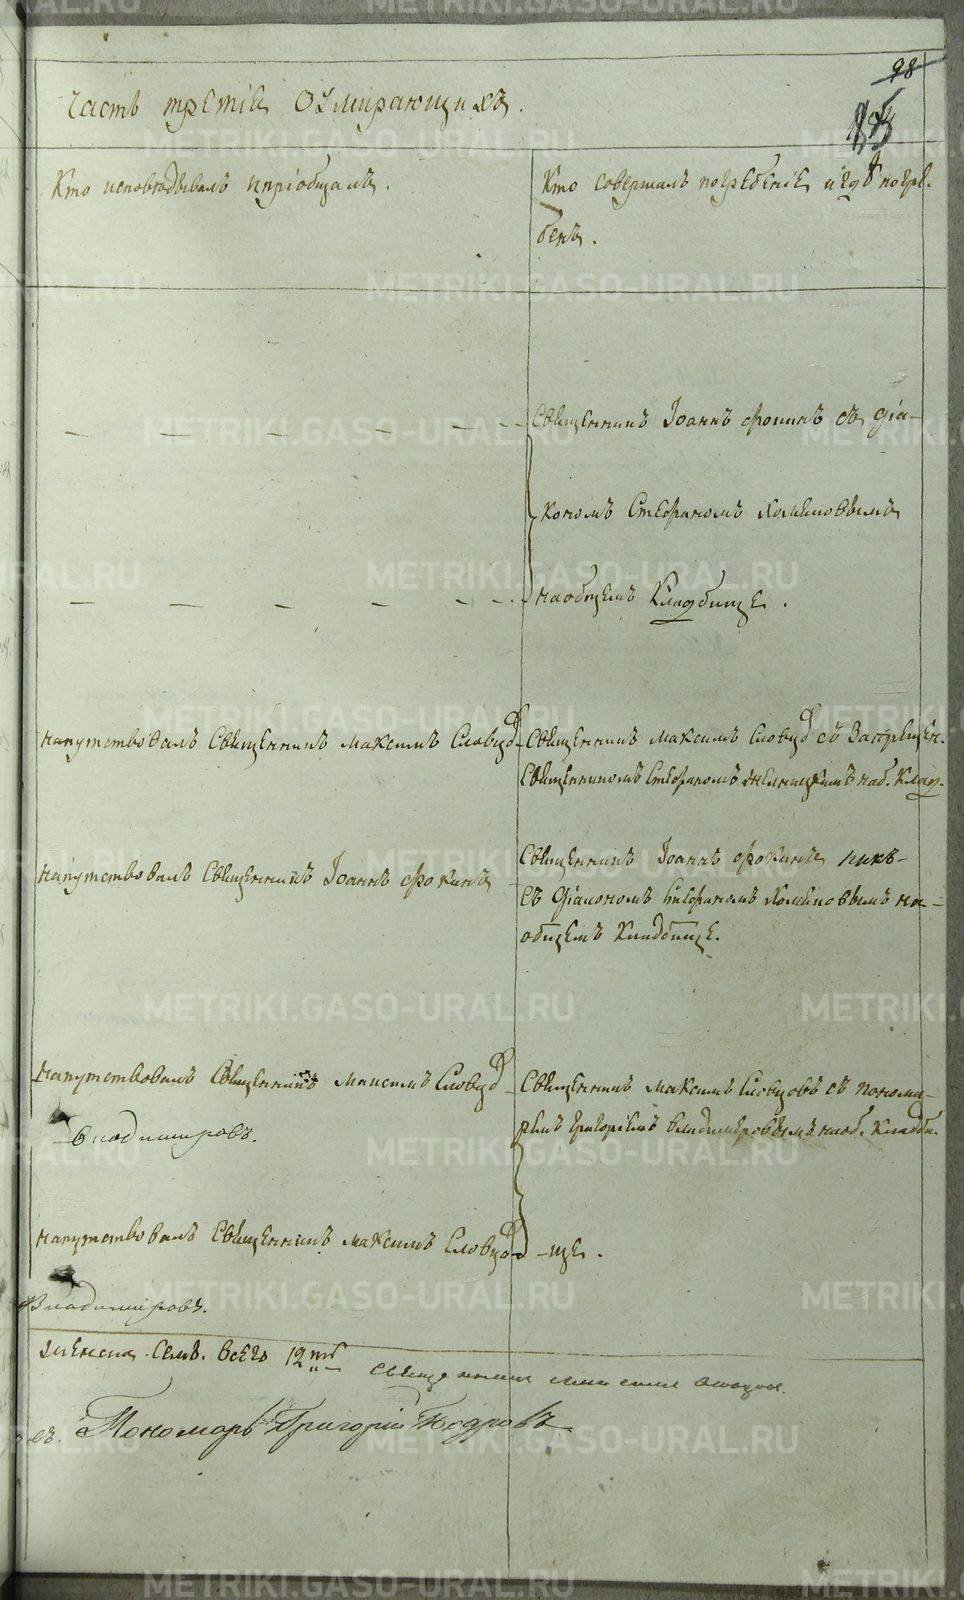 98
Часть третія оумирающихъ.
Кто исповѣдывалъ и пріобщалъ.
Кто совершалъ погребеніе и гдѣ погре-
бенъ.
Священникъ Іоаннъ Фокинъ съ діа-
кономъ Стефаномъ
на общемъ Кладбище.
напутствовалъ Священникъ Максимъ Словцо
Священникъ Максимъ Словцо съ Запрещен.
Священникомъ Стефаномъ на об. Клад.
напутствовалъ Священникъ Іоаннъ Фокинъ
Священникъ Іоаннъ Фокинъ
съ діакономъ Стефаномъ на-
общемъ Кладбище.
Напутствовалъ Священникъ Максимъ Словцо
Владимировъ.
Священникъ Максимъ Словцовъ съ понома-
ремъ Григоріемъ Владимировымъ на об. Кладби-
напутствовалъ Священникъ Максимъ Словцо
-ще.
Владимировъ.
женска. семь. всего 12ть
священникъ
Пономарь Григорій
METRIKI.GASO-URAL.RU